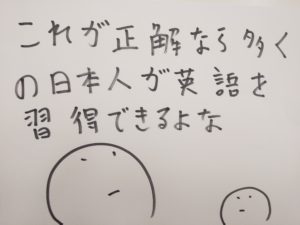 これが正解なら多く
の日本人が英語を
習得できるよな